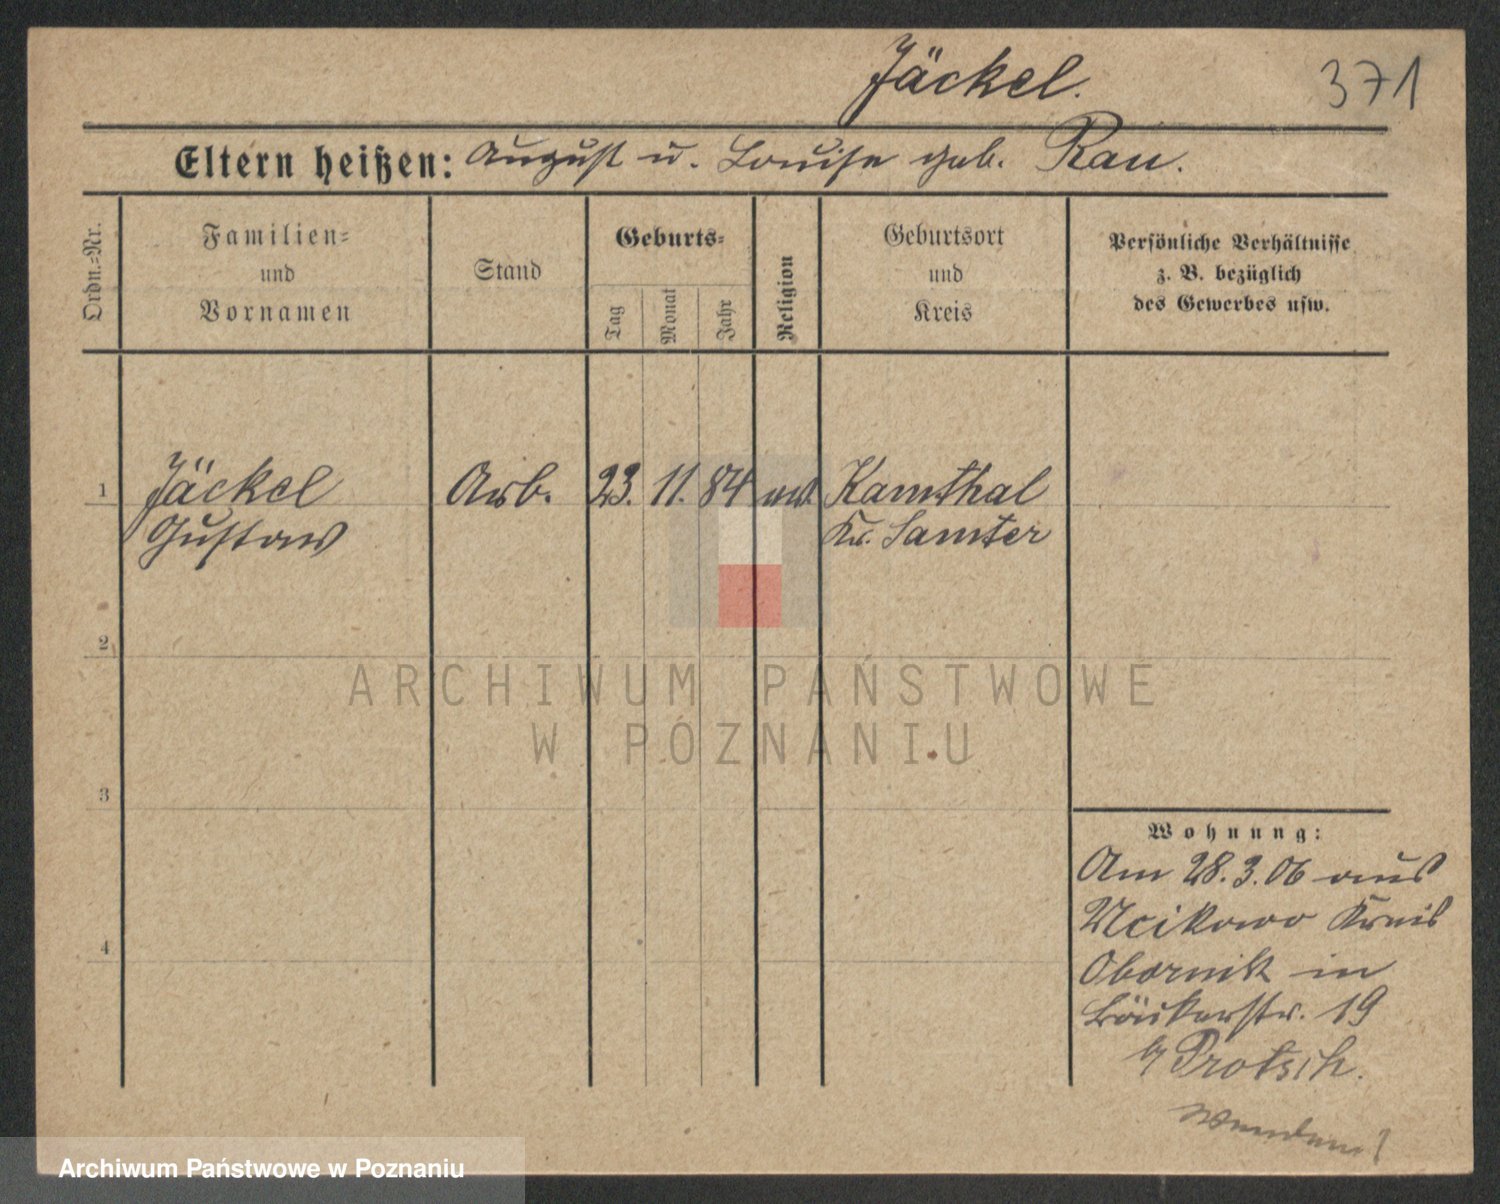 Jäckel. 371
Eltern heißen: August u. Louise geb. Rau.
Ordn.-Nr.
Familien-
und
Vornamen
Stand
Geburts-
Tag
Monat
Jahr
Religion
Geburtsort
und
Kreis
Persönliche Verhältnisse
z. B. bezüglich
des Gewerbes usw.
1 Jäckel Arb. 23. 11. 84 ev. Kamthal
Gustav Kr. Samter
2
ARCHIWUM PAŃSTWOWE
W POZNANIU
3
Wohnung:
Am 28.3.06 aus
Ucikowo Kreis
4 Obornik in
Bäckerstr. 19
b/ Protsch.
Wenden!
Archiwum Państwowe w Poznaniu